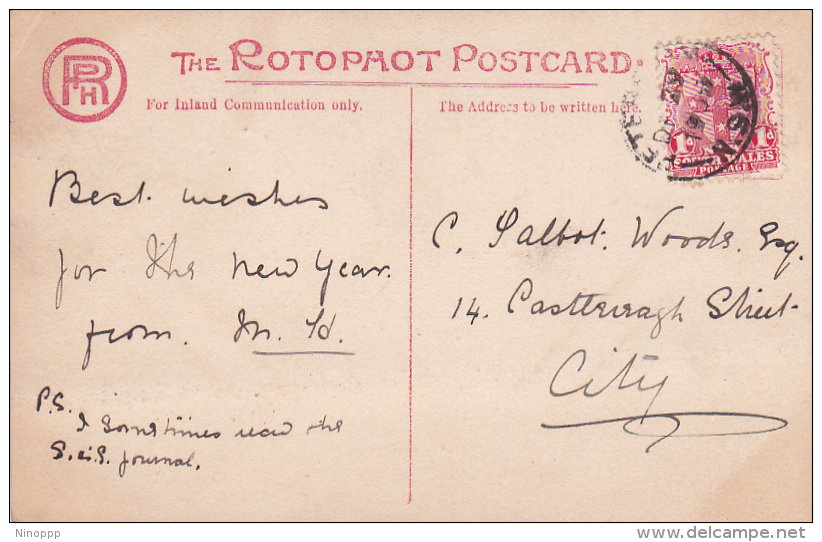 RPH
THE ROTOPHOT POSTCARD.
For Inland Communication only.
The Address to be written here.
N.S.W
1d 1d
SOUTH WALES
POSTAGE
Best wishes
for the new year.
from. M. H.
P.S.
I sometimes read the
journal.
C. Talbot. Woods. Esq.
14. Castlereagh Street
City
Ninoppp
delcampe.net